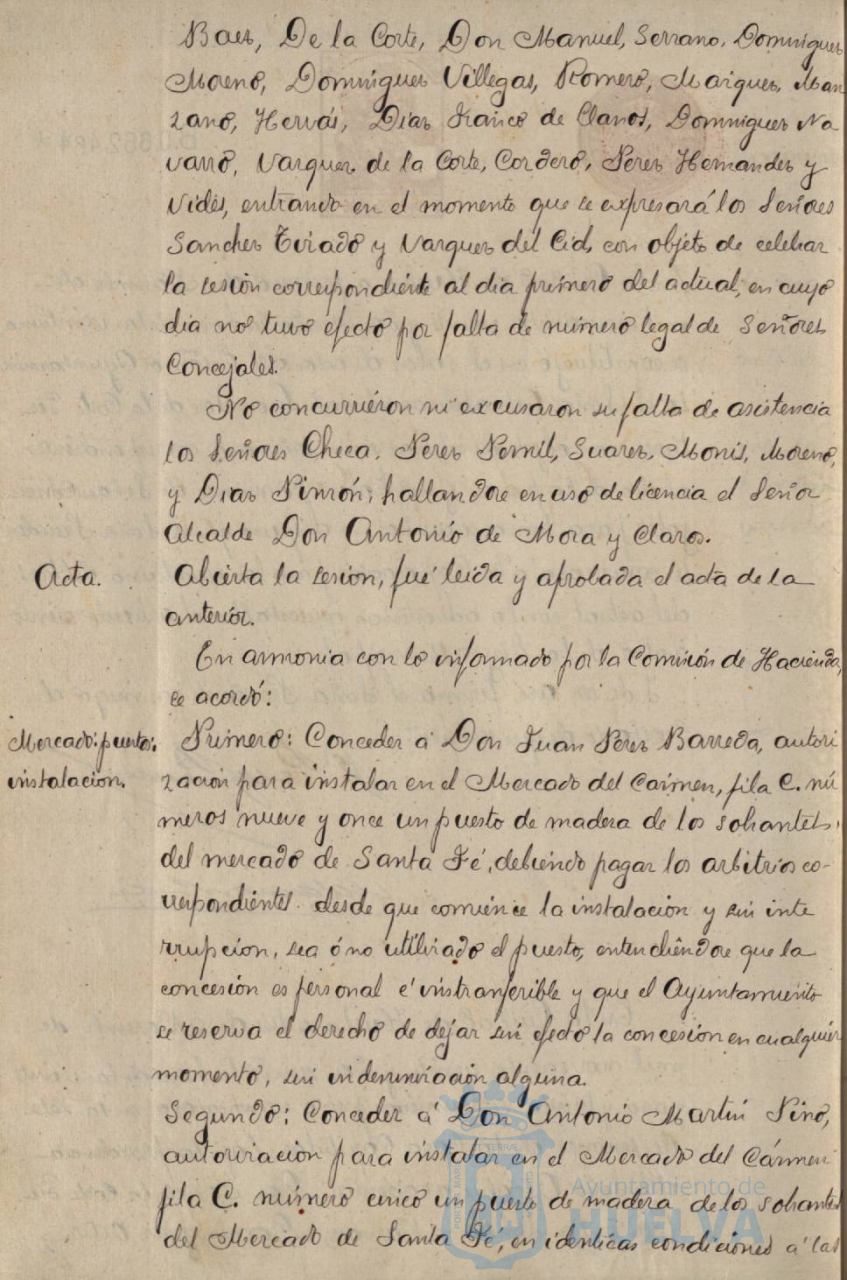 Baes, De la Corte, Don Manuel, Serrano, Dominguez
Moreno, Dominguez Villegas, Romero, Marquez, Man
zano, Hervás, Diaz Franco de Llanos, Dominguez Na
varro, Vazquez de la Corte, Cordero, Perez Hernandez y
Vides, entrando en el momento que se expresará los Señores
Sanchez Tirado y Vazquez del Cid, con objeto de celebrar
la sesion correspondiente al dia primero del actual, en cuyo
dia no tuvo efecto por falta de número legal de Señores
Concejales.
No concurrieron ni excusaron su falta de asistencia
los Señores Checa, Perez Pernil, Suarez, Monis, Moreno,
y Diaz Pinzón; hallandose en uso de licencia el Señor
Alcalde Don Antonio de Mora y Claros.
Acta. Abierta la sesion, fué leida y aprobada el acta de la
anterior.
En armonia con lo informado por la Comisión de Hacienda,
se acordó:
Mercado: puesto: Primero: Conceder a Don Juan Perez Barreda, autori
instalacion. zacion para instalar en el Mercado del Carmen, fila C. nú
meros nueve y once un puesto de madera de los sobrantes
del mercado de Santa Fé, debiendo pagar los arbitrios co-
rrespondientes desde que comience la instalacion y sin inte
rrupcion, sea ó no utilizado el puesto, entendiendose que la
concesión es personal é instransferible y que el Ayuntamiento
se reserva el derecho de dejar sin efecto la concesion en cualquier
momento, sin indemnizacion alguna.
Segundo: Conceder á Don Antonio Martin Pino,
autorizacion para instalar en el Mercado del Cármen
fila C. número cinco un puesto de madera de los sobrantes
del Mercado de Santa Fé, en identicas condiciones á las
Ayuntamiento de
HUELVA